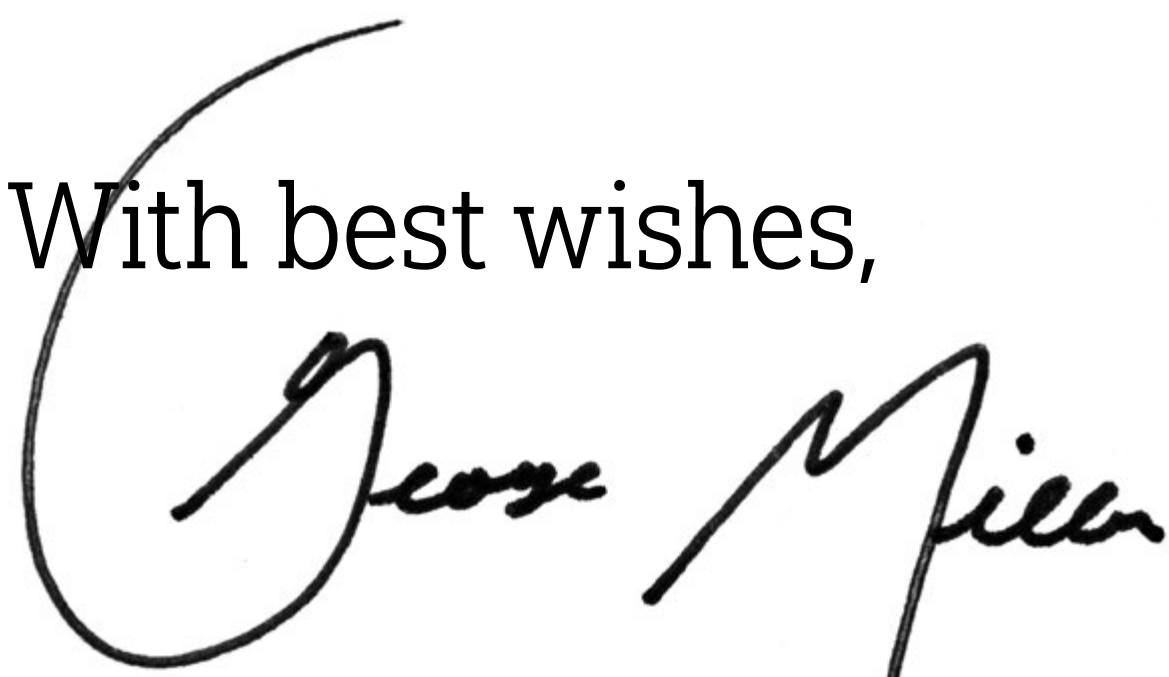 With best wishes,
George Miller